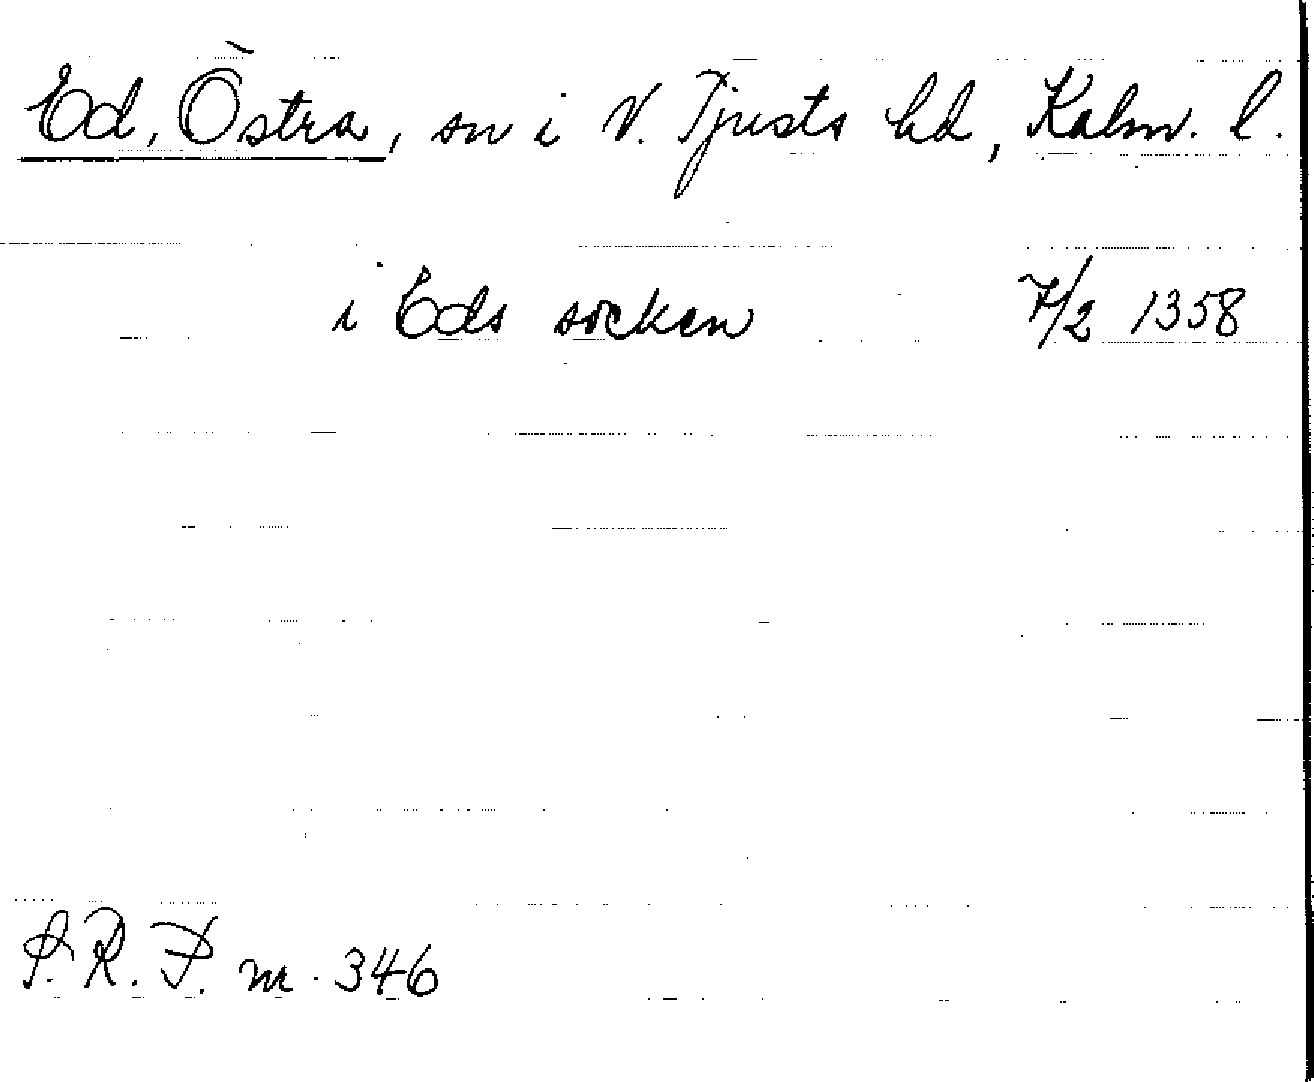 Ed, Östra, sn i N. Tjusts hd, Kalm. l.
i Eds socken 7/2 1358
S.R.P. nr. 346